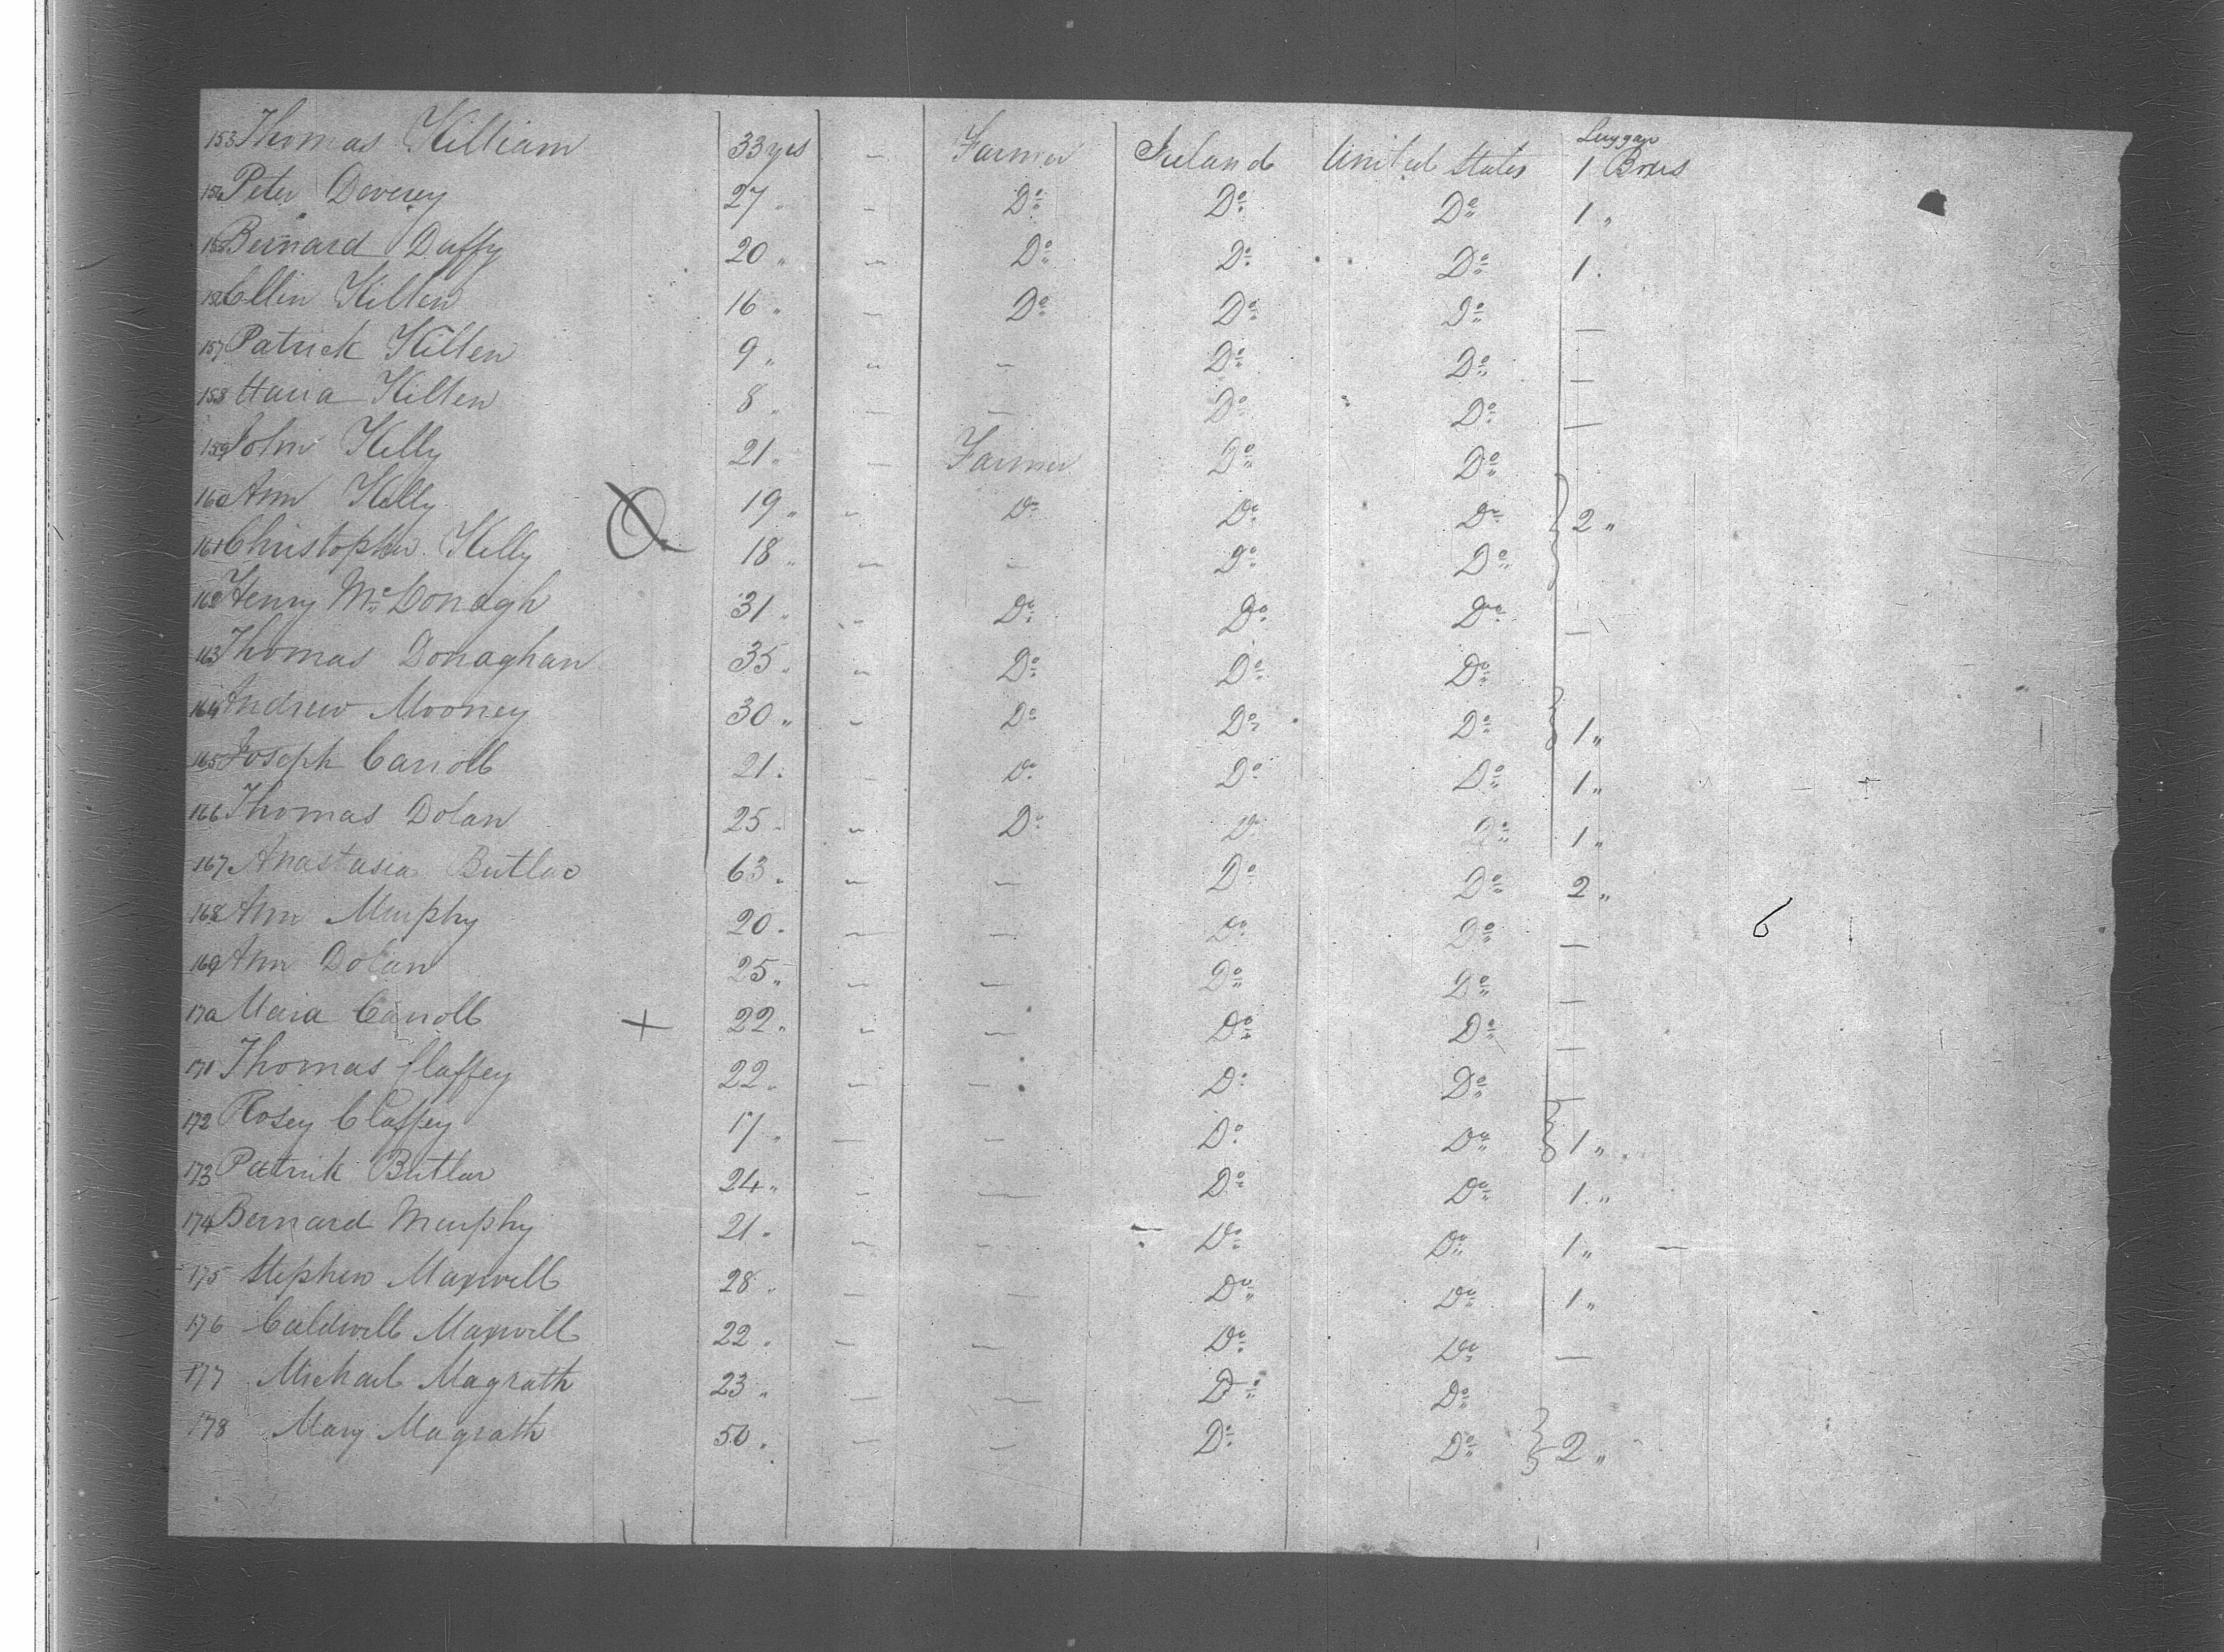 Luggage
153 Thomas Killiam 33 yrs " Farmer Ireland United States 1 Boxes
154 Peter Deverey 27 " " Do Do Do 1 "
155 Bernard Duffy 20 " " Do Do Do 1 "
156 Ellin Killen 16 " " Do Do Do —
157 Patrick Killen 9 " " — Do Do —
158 Maria Killen 8 " — — Do Do —
159 John Kelly 21 " — Farmer Do Do
160 Ann Kelly 19 " " Do Do Do 2 "
161 Christopher Kelly 18 " " — Do Do
162 Henry McDonagh 31 " " Do Do Do —
163 Thomas Donaghan 35 " " Do Do Do
164 Andrew Mooney 30 " " Do Do Do 1 "
165 Joseph Carroll 21 " — Do Do Do 1 "
166 Thomas Dolan 25 " " Do Do Do 1 "
167 Anastasia Butler 63 " " — Do Do 2 "
168 Ann Murphy 20 " — — Do Do — 6
169 Ann Dolan 25 " " — Do Do —
170 Maria Carroll + 22 " " — Do Do —
171 Thomas Claffey 22 " — — Do Do —
172 Rosey Claffey 17 " — — Do Do 1 "
173 Patrick Butler 24 " " — Do Do 1 "
174 Bernard Murphy 21 " " — Do Do 1 "
175 Stephen Maxwell 28 " — — Do Do 1 "
176 Caldwell Maxwell 22 " — — Do Do —
177 Michael Magrath 23 " — — Do Do
178 Mary Magrath 50 " — — Do Do 2 "